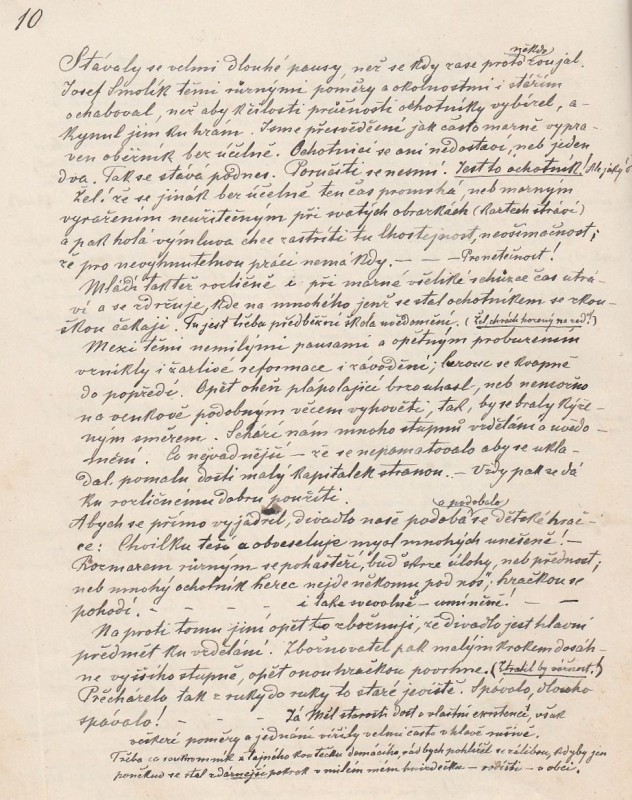 10
někdo
Stávaly se velmi dlouhé pausy, než se kdy zase proto zoujal.
Josef Smolík těmi různými poměry a okolnostmi i stářím
ochaboval, než aby k čilosti pručnosti ochotníky vybízel, a-
kynul jim ku hrám. Jsme přesvědčeni jak často marně vypra-
ven oběžník, bez účelně. Ochotníci se ani nedostaví, neb jeden
dva. Tak se stává podnes. Poručiti se nesmí. Jest to ochotník! Ale jaký?
Žel! že se jinák bez účelně ten čas promrhá, neb marným
vyražením neužitečným při svatých obrázkách (kartech tráví)
a pak holá výmluva chce zastříti tu lhostejnost, nevšímačnost;
že pro nevyhnutelnou práci nemá kdy. — — — Pronetečnost!
Mládí taktéž rozličně i při marné všeliké schůzce čas utrá-
ví a se zdržuje, kde na mnohého jenž se stal ochotníkem se zkou-
škou čekají. Tu jest třeba předběžní škola uvědomění. (Žel, hrách házený na zeď!)
Mezi těmi nemilými pausami a opětným probuzením
vznikly i žárlivé reformace i závodění; beroucí se kvapně
do popředí. Opět oheň plápolající brzo uhasl, neb nemožno
na venkově podobným věcem vyhověti, tak, by se braly kýže-
ným směrem. Schází nám mnoho stupňů vzdělání a uvědo-
mění. Co nejvadnější — že se nepamatovalo aby se ukla-
dal pomalu dosti malý kapitálek stranou. — Vždy pak se dá
ku rozličnému dobru použíti.
a podobalo
Abych se přímo vyjádřil, divadlo naše podobá se dětské hrač-
ce: Chvilku těší a obveseluje mysl mnohých unešeně! —
Rozmarem různým se pohaštěří, buď skrze úlohy, neb přednost;
neb mnohý ochotník herec nejde někomu pod nos", hračkou se
pohodí. - - - - - i také svovolně — umíněně! — —
Na proti tomu jiní opět to zbožňují, že divadlo jest hlavní
předmět ku vzdělání. Zbožňovatel pak malým krokem dosáh-
ne vyššího stupně, opět onou hračkou povrhne. (Ztratil by vážnost!)
Přecházelo tak z ruky do ruky to staré jeviště. Spávalo, dlouho
spávalo! - - - - Já měl starosti dost o vlastní existenci, však
veškeré poměry a jednání vířily velmi často v hlavě rušivě.
Třeba co soukromník z tajného koutečku domácího, rád bych pohlížel se zálibou, kdyby jen
poněkud se stal zdárnější pokrok v milém mém hnízdečku — rodišti — a obci.